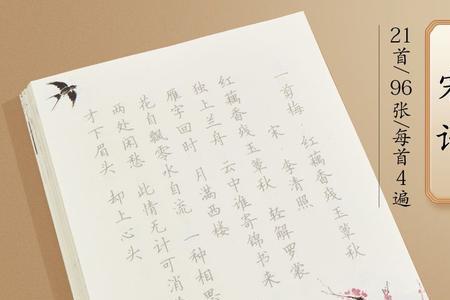 21首/96张/每首4遍
一剪梅·红藕香残玉簟秋
宋 李清照
红藕香残玉簟秋 轻解罗裳
独上兰舟 云中谁寄锦书来
雁字回时 月满西楼
花自飘零水自流 一种相思
两处闲愁 此情无计可消
才下眉头 却上心头